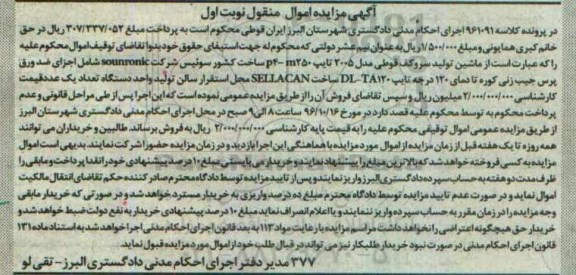 آگهی مزایده اموال منقول نوبت اول
در پرونده کلاسه 961091 اجرای احکام مدنی دادگستری شهرستان البرز ایران قوطی محکوم است به پرداخت مبلغ 307/337/052 ریال در حق
خانم کبری همایونی و مبلغ 1/500/000 ریال به عنوان نیم عشر دولتی که محکوم له جهت استیفای حقوق خود بدوا تقاضای توقیف اموال محکوم علیه
را که عبارت است از ماشین تولید سروکف قوطی مدل 2005 تایپ p4-m250 ساخت کشور سوئیس شرکت sounronic شامل اجزای ضد ورق
پرس جیب زنی کوره تا دمای 120 درجه تایپ DL-TA120 ساخت SELLACAN محل استقرار سالن تولید واحد دستگاه تعداد یک عدد قیمت
کارشناسی 2/000/000/000 میلیون ریال و سپس تقاضای فروش آن را از طریق مزایده عمومی نموده است که این اجرا پس از طی مراحل قانونی و عدم
پرداخت محکوم به توسط محکوم علیه قصد دارد در مورخ 96/10/16 ساعت 8 الی 9 صبح در محل اجرای احکام مدنی دادگستری شهرستان البرز
از طریق مزایده عمومی اموال توقیفی محکوم علیه را به قیمت پایه کارشناسی 2/000/000/000 ریال به فروش برساند. طالبین و خریداران می توانند
همه روزه تا یک هفته قبل از زمان مزایده از اموال مورد مزایده با هماهنگی این اجرا بازدید و در زمان مزایده حضورا شرکت نمایند. بدیهی است اموال
مزایده به کسی فروخته خواهد شد که بالاترین مبلغ را پیشنهاد نمایند و خریدار می بایستی مبلغ 10 درصد پیشنهادی خود را نقدا پرداخت و مابقی را
ظرف مدت دو هفته به حساب سپرده دادگستری البرز واریز نمایند و پس از تایید مزایده توسط دادگاه محترم صادر کننده حکم تقاضای انتقال مالکیت
اموال نماید و در صورت عدم تایید مزایده توسط دادگاه محترم مبلغ ده درصد واریزی به خریدار مسترد خواهد شد و در صورتی که خریدار مابقی
وجه مزایده را در زمان مقرر به حساب سپرده واریز ننمایند و یا اعلام انصراف نماید مبلغ 10 درصد پیشنهادی خریدار به نفع دولت ضبط خواهد شد و
خریدار حق هیچگونه اعتراضی را نخواهد داشت مراسم مزایده با رعایت مواد 113 به بعد قانون اجرای احکام مدنی اجرا خواهد شد به استناد ماده 131
قانون اجرای احکام مدنی در صورت نبود خریدار طلبکار نیز می تواند در قبال طلب خود از اموال مورد مزایده قبول نماید.
377 مدیر دفتر اجرای احکام مدنی دادگستری البرز - تقی لو